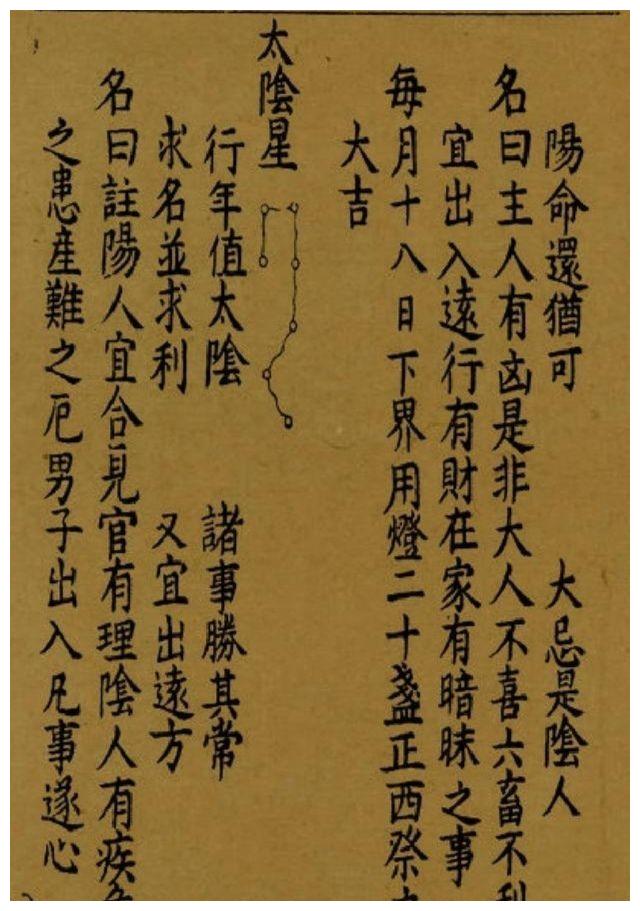 陽命還猶可　大忌是陰人
名曰主人有凶是非大人不喜六畜不利
宜出入遠行有財在家有暗昧之事
每月十八日下界用燈二十盞正西祭之
大吉
太陰星
行年值太陰　諸事勝其常
求名並求利　又宜出遠方
名曰註陽人宜合見官有理陰人有疾
之患產難之厄男子出入凡事遂心